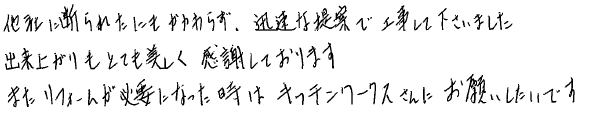 他社に断られたにもかかわらず、迅速な提案で工事して下さいました
出来上がりもとても美しく感謝しております
またリフォームが必要になった時はキッチンワークスさんにお願いしたいです